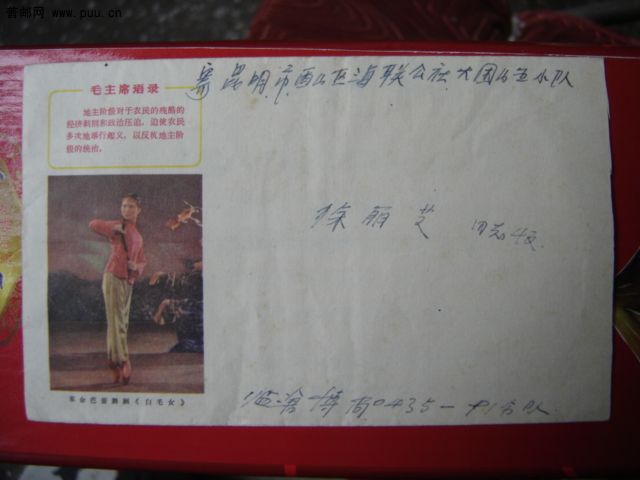 普邮网 www.puu.cn
毛主席语录
地主阶级对于农民的残酷的
经济剥削和政治压迫，迫使农民
多次地举行起义，以反抗地主阶
级的统治。
寄 昆明市西山区海联公社大团山五小队
徐丽芝 同志收
革命芭蕾舞剧《白毛女》
临沧 0435